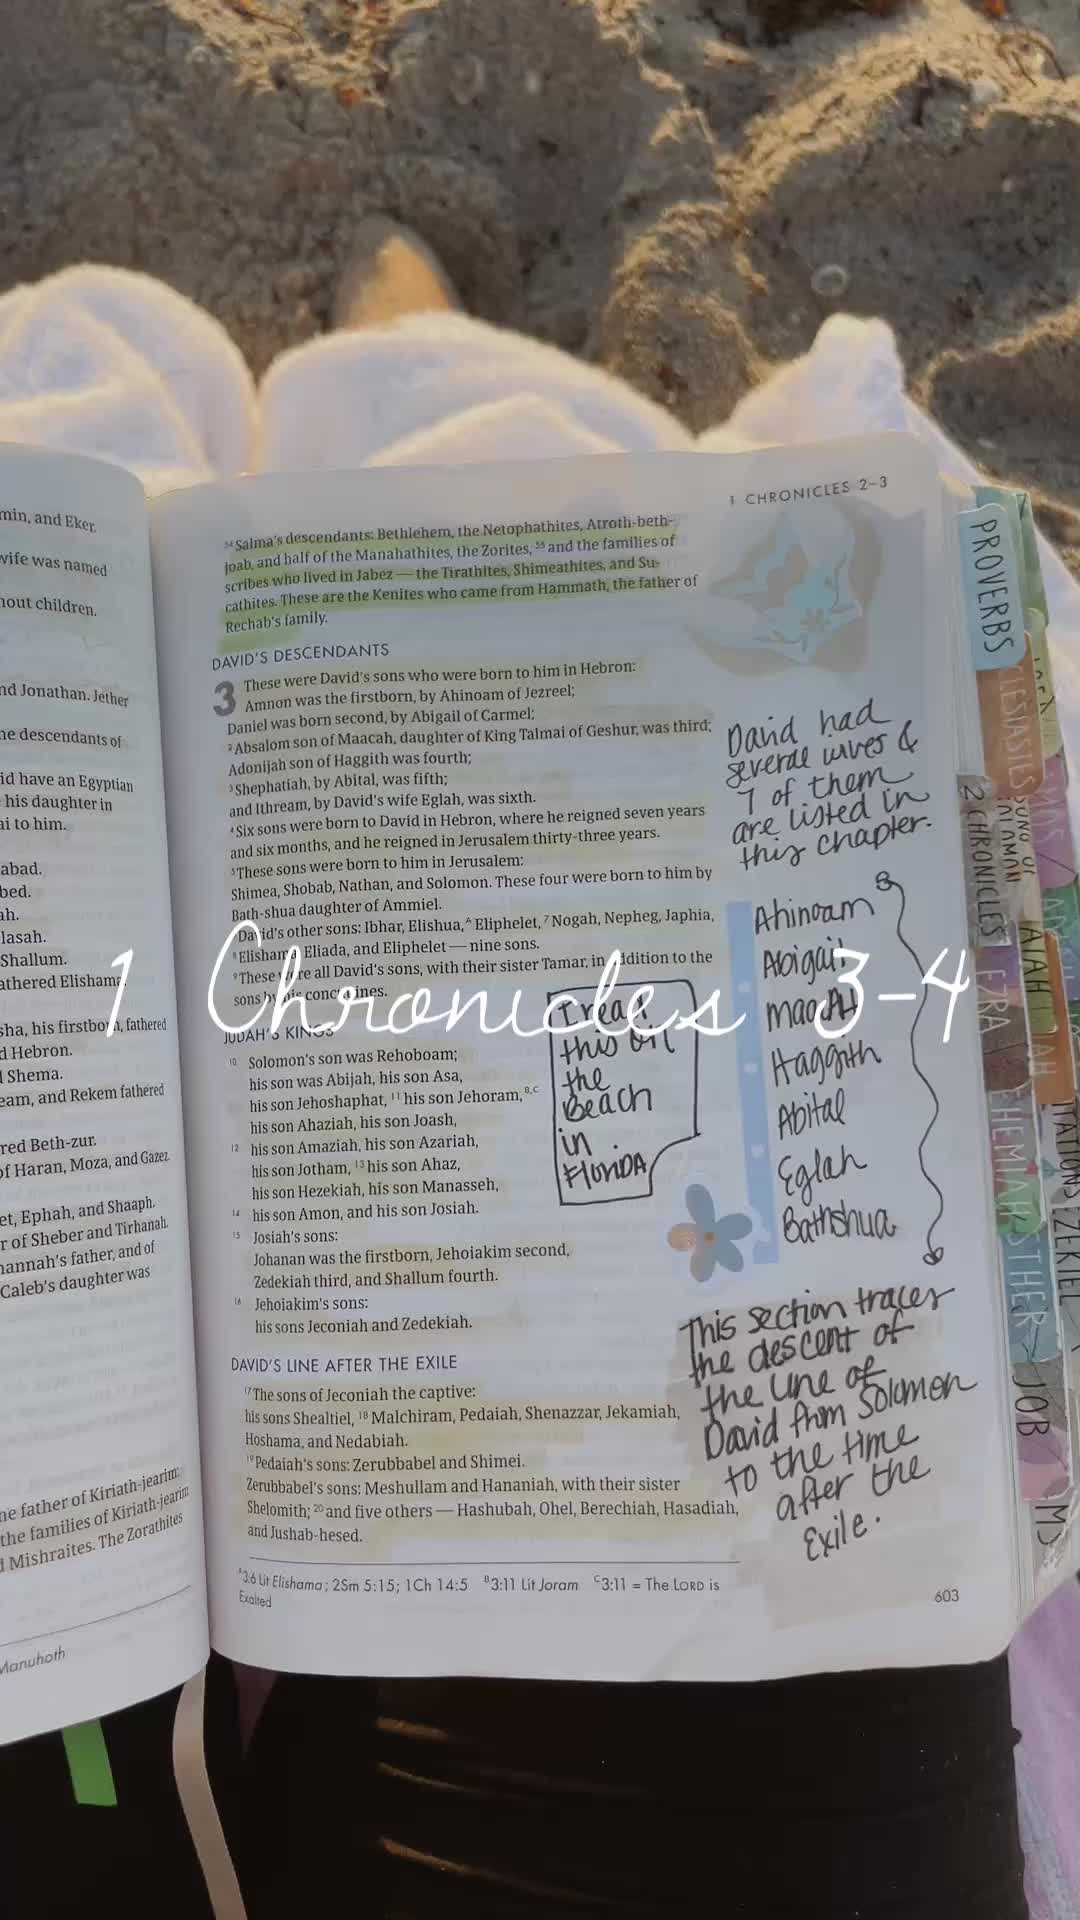 min, and Eker.
wife was named
hout children.
nd Jonathan. Jether
he descendants of
id have an Egyptian
his daughter in
ai to him.
abad.
bed.
ah.
lasah.
Shallum.
athered Elishama.
sha, his firstborn, fathered
d Hebron.
Shema.
eam, and Rekem fathered
red Beth-zur.
of Haran, Moza, and Gazez.
et, Ephah, and Shaaph.
r of Sheber and Tirhanah.
mannah's father, and of
Caleb's daughter was
he father of Kiriath-jearim:
the families of Kiriath-jearim
d Mishraites. The Zorathites
Manuhoth
1 CHRONICLES 2–3
54 Salma's descendants: Bethlehem, the Netophathites, Atroth-beth-
joab, and half of the Manahathites, the Zorites, 55 and the families of
scribes who lived in Jabez — the Tirathites, Shimeathites, and Su-
cathites. These are the Kenites who came from Hammath, the father of
Rechab's family.
DAVID'S DESCENDANTS
3 These were David's sons who were born to him in Hebron:
Amnon was the firstborn, by Ahinoam of Jezreel;
Daniel was born second, by Abigail of Carmel;
2 Absalom son of Maacah, daughter of King Talmai of Geshur, was third;
Adonijah son of Haggith was fourth;
3 Shephatiah, by Abital, was fifth;
and Ithream, by David's wife Eglah, was sixth.
4 Six sons were born to David in Hebron, where he reigned seven years
and six months, and he reigned in Jerusalem thirty-three years.
5 These sons were born to him in Jerusalem:
Shimea, Shobab, Nathan, and Solomon. These four were born to him by
Bath-shua daughter of Ammiel.
David's other sons: Ibhar, Elishua,A Eliphelet, 7 Nogah, Nepheg, Japhia,
8 Elishama, Eliada, and Eliphelet — nine sons.
9 These were all David's sons, with their sister Tamar, in addition to the
sons by his concubines.
1 Chronicles 3-4
JUDAH'S KINGS
10 Solomon's son was Rehoboam;
his son was Abijah, his son Asa,
his son Jehoshaphat, 11 his son Jehoram,B,C
his son Ahaziah, his son Joash,
12 his son Amaziah, his son Azariah,
his son Jotham, 13 his son Ahaz,
his son Hezekiah, his son Manasseh,
14 his son Amon, and his son Josiah.
15 Josiah's sons:
Johanan was the firstborn, Jehoiakim second,
Zedekiah third, and Shallum fourth.
16 Jehoiakim's sons:
his sons Jeconiah and Zedekiah.
DAVID'S LINE AFTER THE EXILE
17 The sons of Jeconiah the captive:
his sons Shealtiel, 18 Malchiram, Pedaiah, Shenazzar, Jekamiah,
Hoshama, and Nedabiah.
19 Pedaiah's sons: Zerubbabel and Shimei.
Zerubbabel's sons: Meshullam and Hananiah, with their sister
Shelomith; 20 and five others — Hashubah, Ohel, Berechiah, Hasadiah,
and Jushab-hesed.
A3:6 Lit Elishama; 2Sm 5:15; 1Ch 14:5 B3:11 Lit Joram C3:11 = The LORD is
Exalted
603
I read
this on
the
Beach
in
FLORIDA
David had
several wives &
7 of them
are listed in
this chapter.
Ahinoam
Abigail
maacah
Haggith
Abital
Eglah
Bathshua
This section traces
the descent of
the line of
David from Solomon
to the time
after the
Exile.
PROVERBS
2 CHRONICLES
EZRA
JOB
EZEKIEL